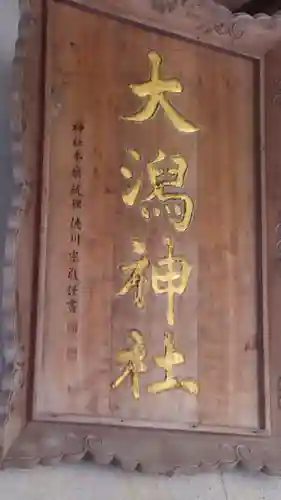 大潟神社
神社本廳統理徳川宗敬謹書